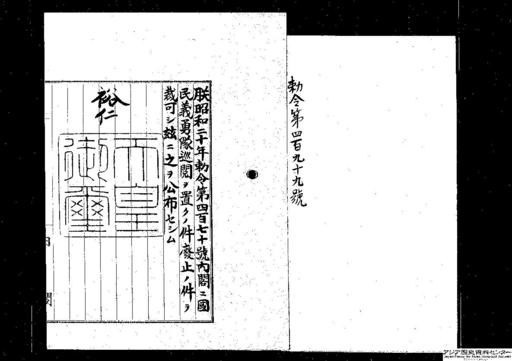 勅令第四百九十九號
朕昭和二十年勅令第四百七十號內閣ニ國
民義勇隊巡閱ヲ置クノ件廢止ノ件ヲ
裁可シ玆ニ之ヲ公布セシム
裕仁
天皇
御璽
内閣
アジア歴史資料センター